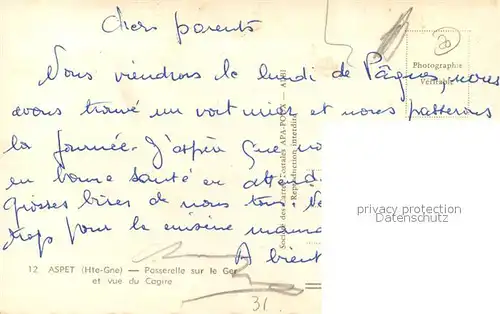 Chers parents
Nous viendrons le lundi de Pâques, nous
avons trouvé un voiturier et nous passerons
la journée. J'espère que vo
en bonne santé en attend
grosses bises de nous tous. Ne
trop pour la cuisine mama
A bient
12 ASPET (Hte-Gne) — Passerelle sur le Ger
et vue du Cagire
31
Société des Cartes Postales APA-POUX — ALBI
Reproduction interdite
20
Photographie
Véritable
privacy protection
Datenschutz